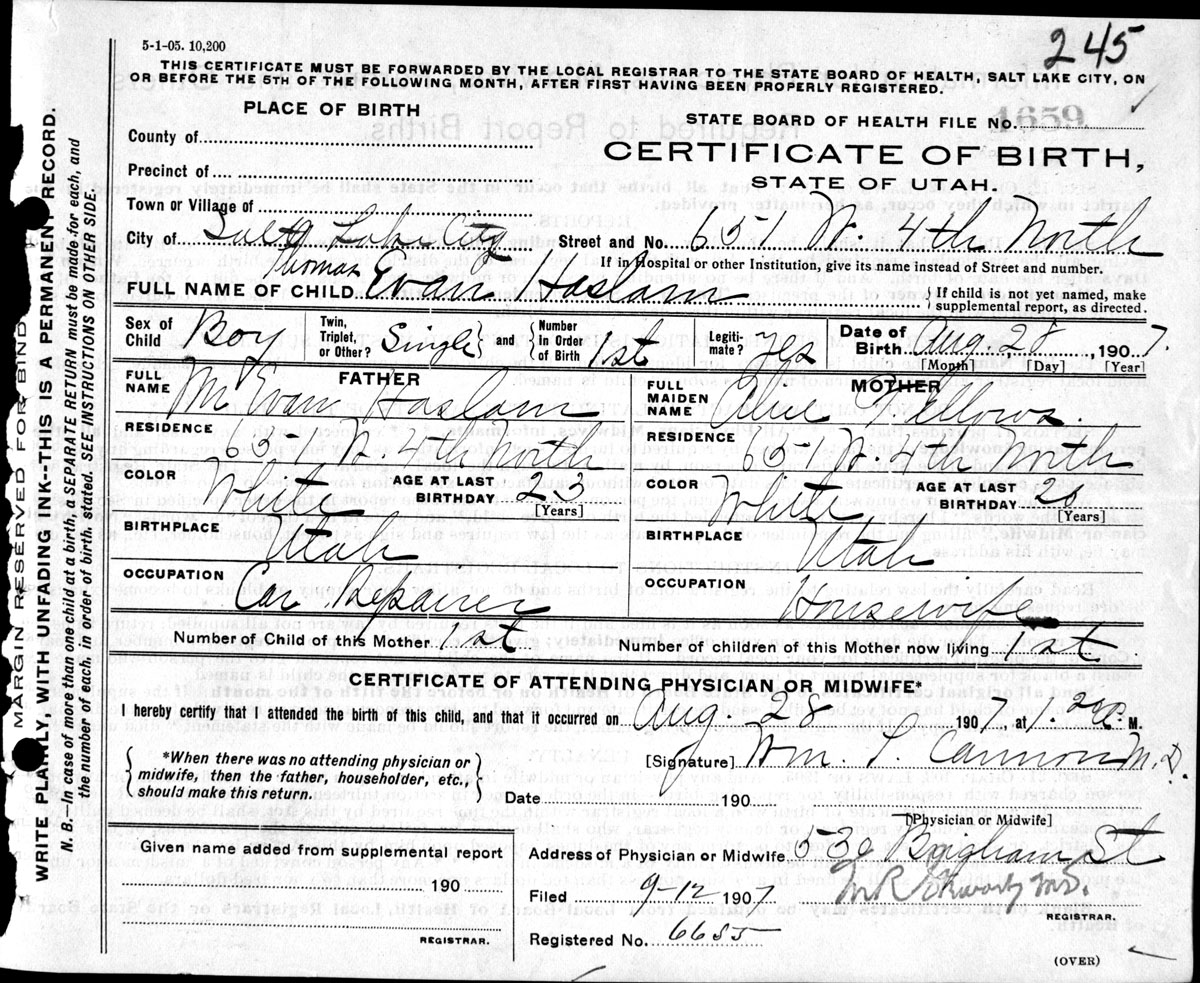 245
5-1-05. 10,200
THIS CERTIFICATE MUST BE FORWARDED BY THE LOCAL REGISTRAR TO THE STATE BOARD OF HEALTH, SALT LAKE CITY, ON
OR BEFORE THE 5TH OF THE FOLLOWING MONTH, AFTER FIRST HAVING BEEN PROPERLY REGISTERED.
PLACE OF BIRTH
STATE BOARD OF HEALTH FILE No. 1659
County of
CERTIFICATE OF BIRTH,
Precinct of
STATE OF UTAH.
Town or Village of
City of Salt Lake City Street and No. 651 W. 4th North
If in Hospital or other Institution, give its name instead of Street and number.
Thomas
FULL NAME OF CHILD Evan Haslam
{If child is not yet named, make
supplemental report, as directed.
Sex of Child Boy Twin, Triplet, or Other? Single and Number In Order of Birth 1st Legitimate? Yes Date of Birth Aug. 28, 1907.
[Month] [Day] [Year]
FULL NAME FATHER
M. Evan Haslam
FULL MAIDEN NAME MOTHER
Fellows
RESIDENCE 651 W 4th North
RESIDENCE 651 W. 4th North
COLOR White AGE AT LAST BIRTHDAY 23 [Years]
COLOR White AGE AT LAST BIRTHDAY [Years]
BIRTHPLACE Utah
BIRTHPLACE Utah
OCCUPATION Car Repairer
OCCUPATION Housewife
Number of Child of this Mother 1st Number of children of this Mother now living 1st
CERTIFICATE OF ATTENDING PHYSICIAN OR MIDWIFE*
I hereby certify that I attended the birth of this child, and that it occurred on Aug. 28 1907 at 1. M.
*When there was no attending physician or
midwife, then the father, householder, etc.,
should make this return.
[Signature] Wm. T. Cannon M.D.
Date 190
[Physician or Midwife]
Given name added from supplemental report
190
REGISTRAR.
Address of Physician or Midwife 530 Bingham St
Filed 9-12 1907 M.R. M.D.
REGISTRAR.
Registered No. 6655
(OVER)
MARGIN RESERVED FOR BIND
WRITE PLAINLY, WITH UNFADING INK—THIS IS A PERMANENT RECORD.
N. B.—In case of more than one child at a birth, a SEPARATE RETURN must be made for each, and
the number of each, in order of birth, stated. SEE INSTRUCTIONS ON OTHER SIDE.